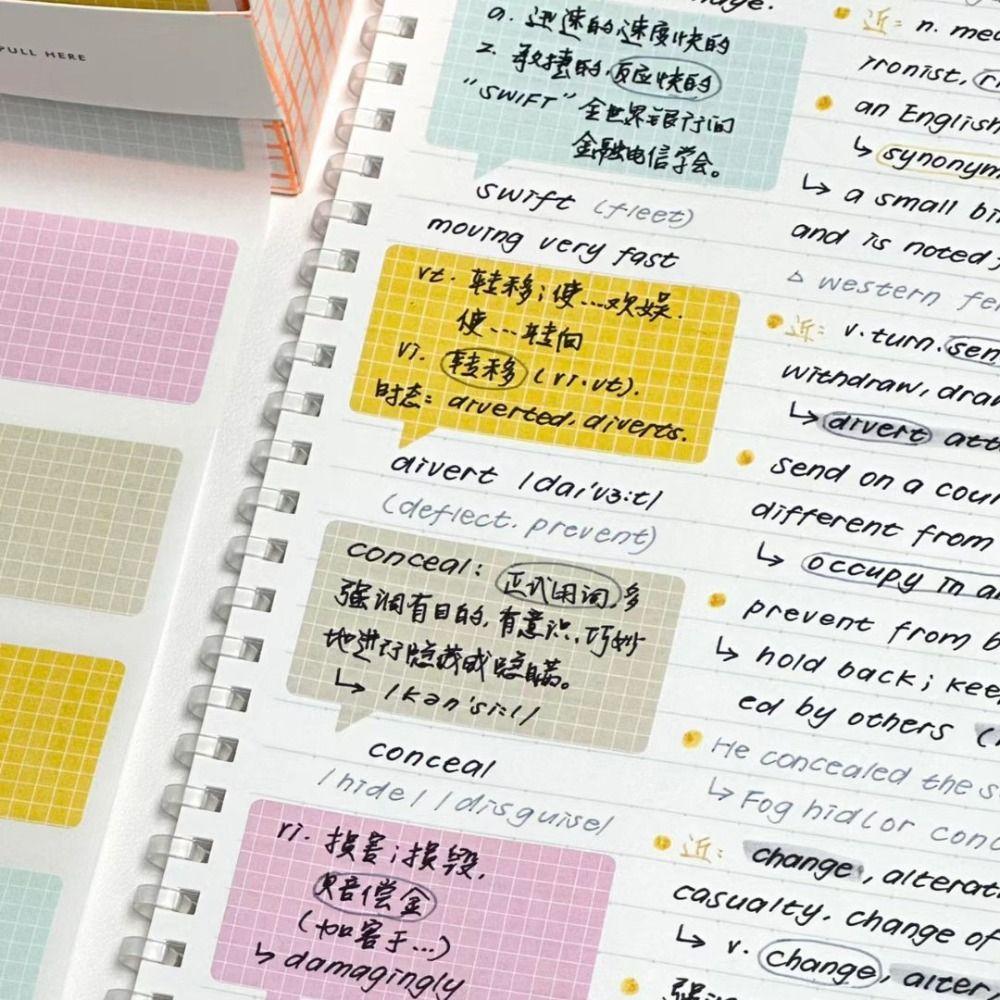 PULL HERE
a. 迅速的,速度快的
2. 敏捷的,反应快的
"SWIFT" 全世界银行间
金融电信学会。
swift (fleet)
moving very fast
vt. 转移;使…欢娱.
使…转向
vi. 转移 (vi.vt).
时态: diverted, diverts.
divert /dai'vɜ:t/
(deflect. prevent)
conceal: 正式用词,多
强调有目的,有意识,巧妙
地进行隐藏或隐瞒。
↳ /kən'si:l/
conceal
/hide/ /disguise/
vi. 损害;损毁,
赔偿金
(加害于…)
↳ damagingly
近: n.
ironist,
an English
↳ synonym
↳ a small
and is noted
△ western
近: v. turn. sen
withdraw,
↳ divert
send on a
different from
↳ occupy in
prevent from
↳ hold back;
ed by others
He concealed the
↳ Fog hid(or
近: change,
casualty. change of
↳ v. change,
强